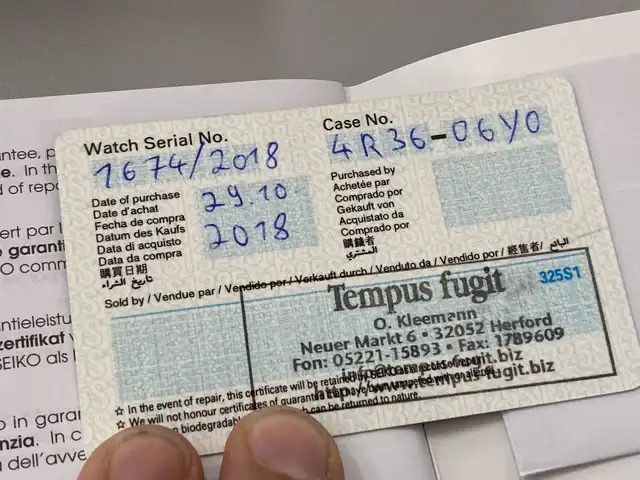 ntee, p
e. In th
d of repa
ert par l
o garanti
O comm
antieleistu
zertifikat v
SEIKO als l
o in garar
nzia. In c
a dell'avve
Watch Serial No.
1674/2018
Case No.
4R36-06Y0
Date of purchase
Date d'achat
Fecha de compra
Datum des Kaufs
Data di acquisto
Data da compra
購買日期
تاريخ الشراء
29.10.
2018
Purchased by
Achetée par
Comprado por
Gekauft von
Acquistato da
Comprado por
購錶者
المشتري
Sold by / Vendue par / Vendido por / Verkauft durch / Venduto da / Vendido por / 經售者 / البائع
325S1
Tempus fugit
O. Kleemann
Neuer Markt 6 • 32052 Herford
Fon: 05221-15893 • Fax: 1789609
info@tempus-fugit.biz
http://www.tempus-fugit.biz
☆ In the event of repair, this certificate will be retained by SEIKO
☆ We will not honour certificates of guarantee
biodegradable can be returned to nature.